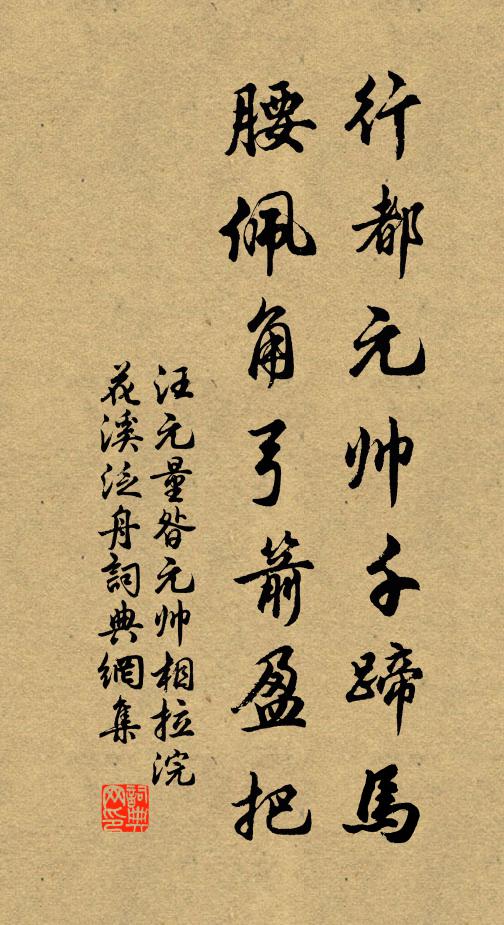 行都元帅千蹄馬
腰佩角弓箭盈把
汪元量昝元帅相拉浣
花溪泛舟詞典網集
詞典网印